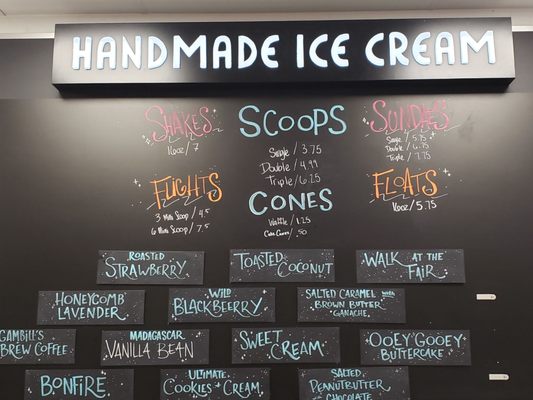 HANDMADE ICE CREAM
SHAKES
16oz / 7
SCOOPS
Single / 3.75
Double / 4.99
Triple / 6.25
SUNDAES
Single / 5.75
Double / 6.75
Triple / 7.75
FLIGHTS
3 Mini Scoop / 4.5
6 Mini Scoop / 7.5
CONES
Waffle / 1.25
Cake Cones / .50
FLOATS
16oz / 5.75
ROASTED
STRAWBERRY
TOASTED
COCONUT
WALK AT THE
FAIR
HONEYCOMB
LAVENDER
WILD
BLACKBERRY
SALTED CARAMEL with
BROWN BUTTER
GANACHE
GAMBILL'S
BREW COFFEE
MADAGASCAR
VANILLA BEAN
SWEET
CREAM
OOEY GOOEY
BUTTERCAKE
BONFIRE
ULTIMATE
COOKIES + CREAM
SALTED
PEANUTBUTTER
CHOCOLATE